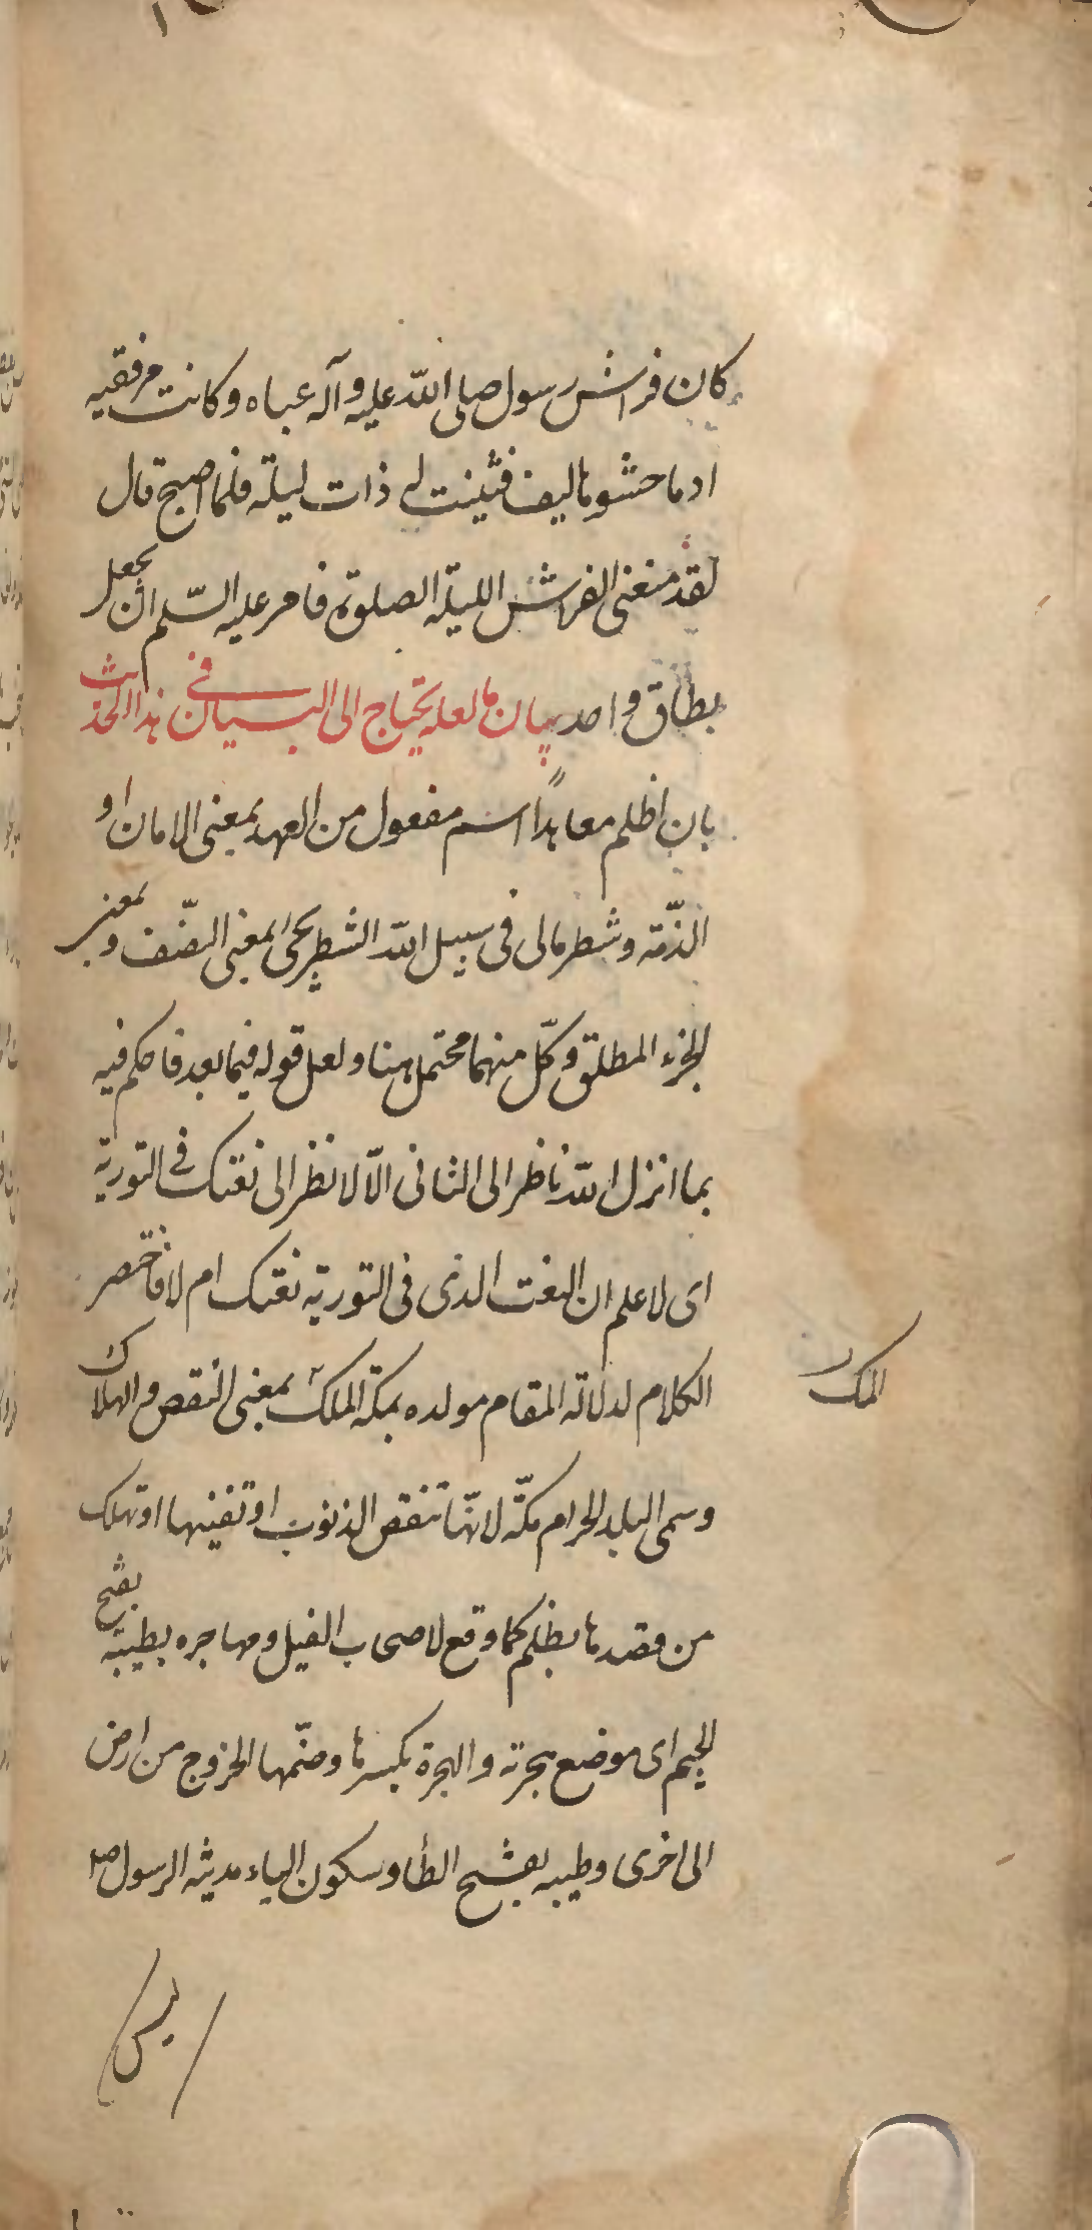 كان فراش رسول صلى الله عليه وآله عباه وكانت مرفقيه
ادما حشوها ليف فثينت له ذات ليلة فلما اصبح قال
لقد منعنى الفراش الليلة الصلوة فامر عليه السلم ان يجعل
بطاق واحد بيان ما لعله يحتاج الى البيان فى هذا الحديث
بان اظلم معاهدا اسم مفعول من العهد بمعنى الامان او
الذمة وشطر مالى فى سبيل الله الشطر يجئ بمعنى النصف وبمعنى
الجزء المطلق وكل منهما محتمل هنا ولعل قوله فيما بعد فاحكم فيه
بما انزل الله ناظر الى الثانى الا لانظر الى نعتك فى التورية
اى لاعلم ان النعت الذى فى التورية نعتك ام لا فاختصر
الكلام لدلالة المقام مولده بمكة الملك بمعنى النقص والهلاك
المك
وسمى البلد الحرام مكة لانها تنقص الذنوب او تفنيها او تهلك
من قصدها بظلم كما وقع لاصحاب الفيل ومهاجره بطيبة بفتح
الجيم اى موضع هجرته والهجرة بكسرها وضمها الخروج من ارض
الى اخرى وطيبه بفتح الطا وسكون الياء مدينة الرسول ص
ليس